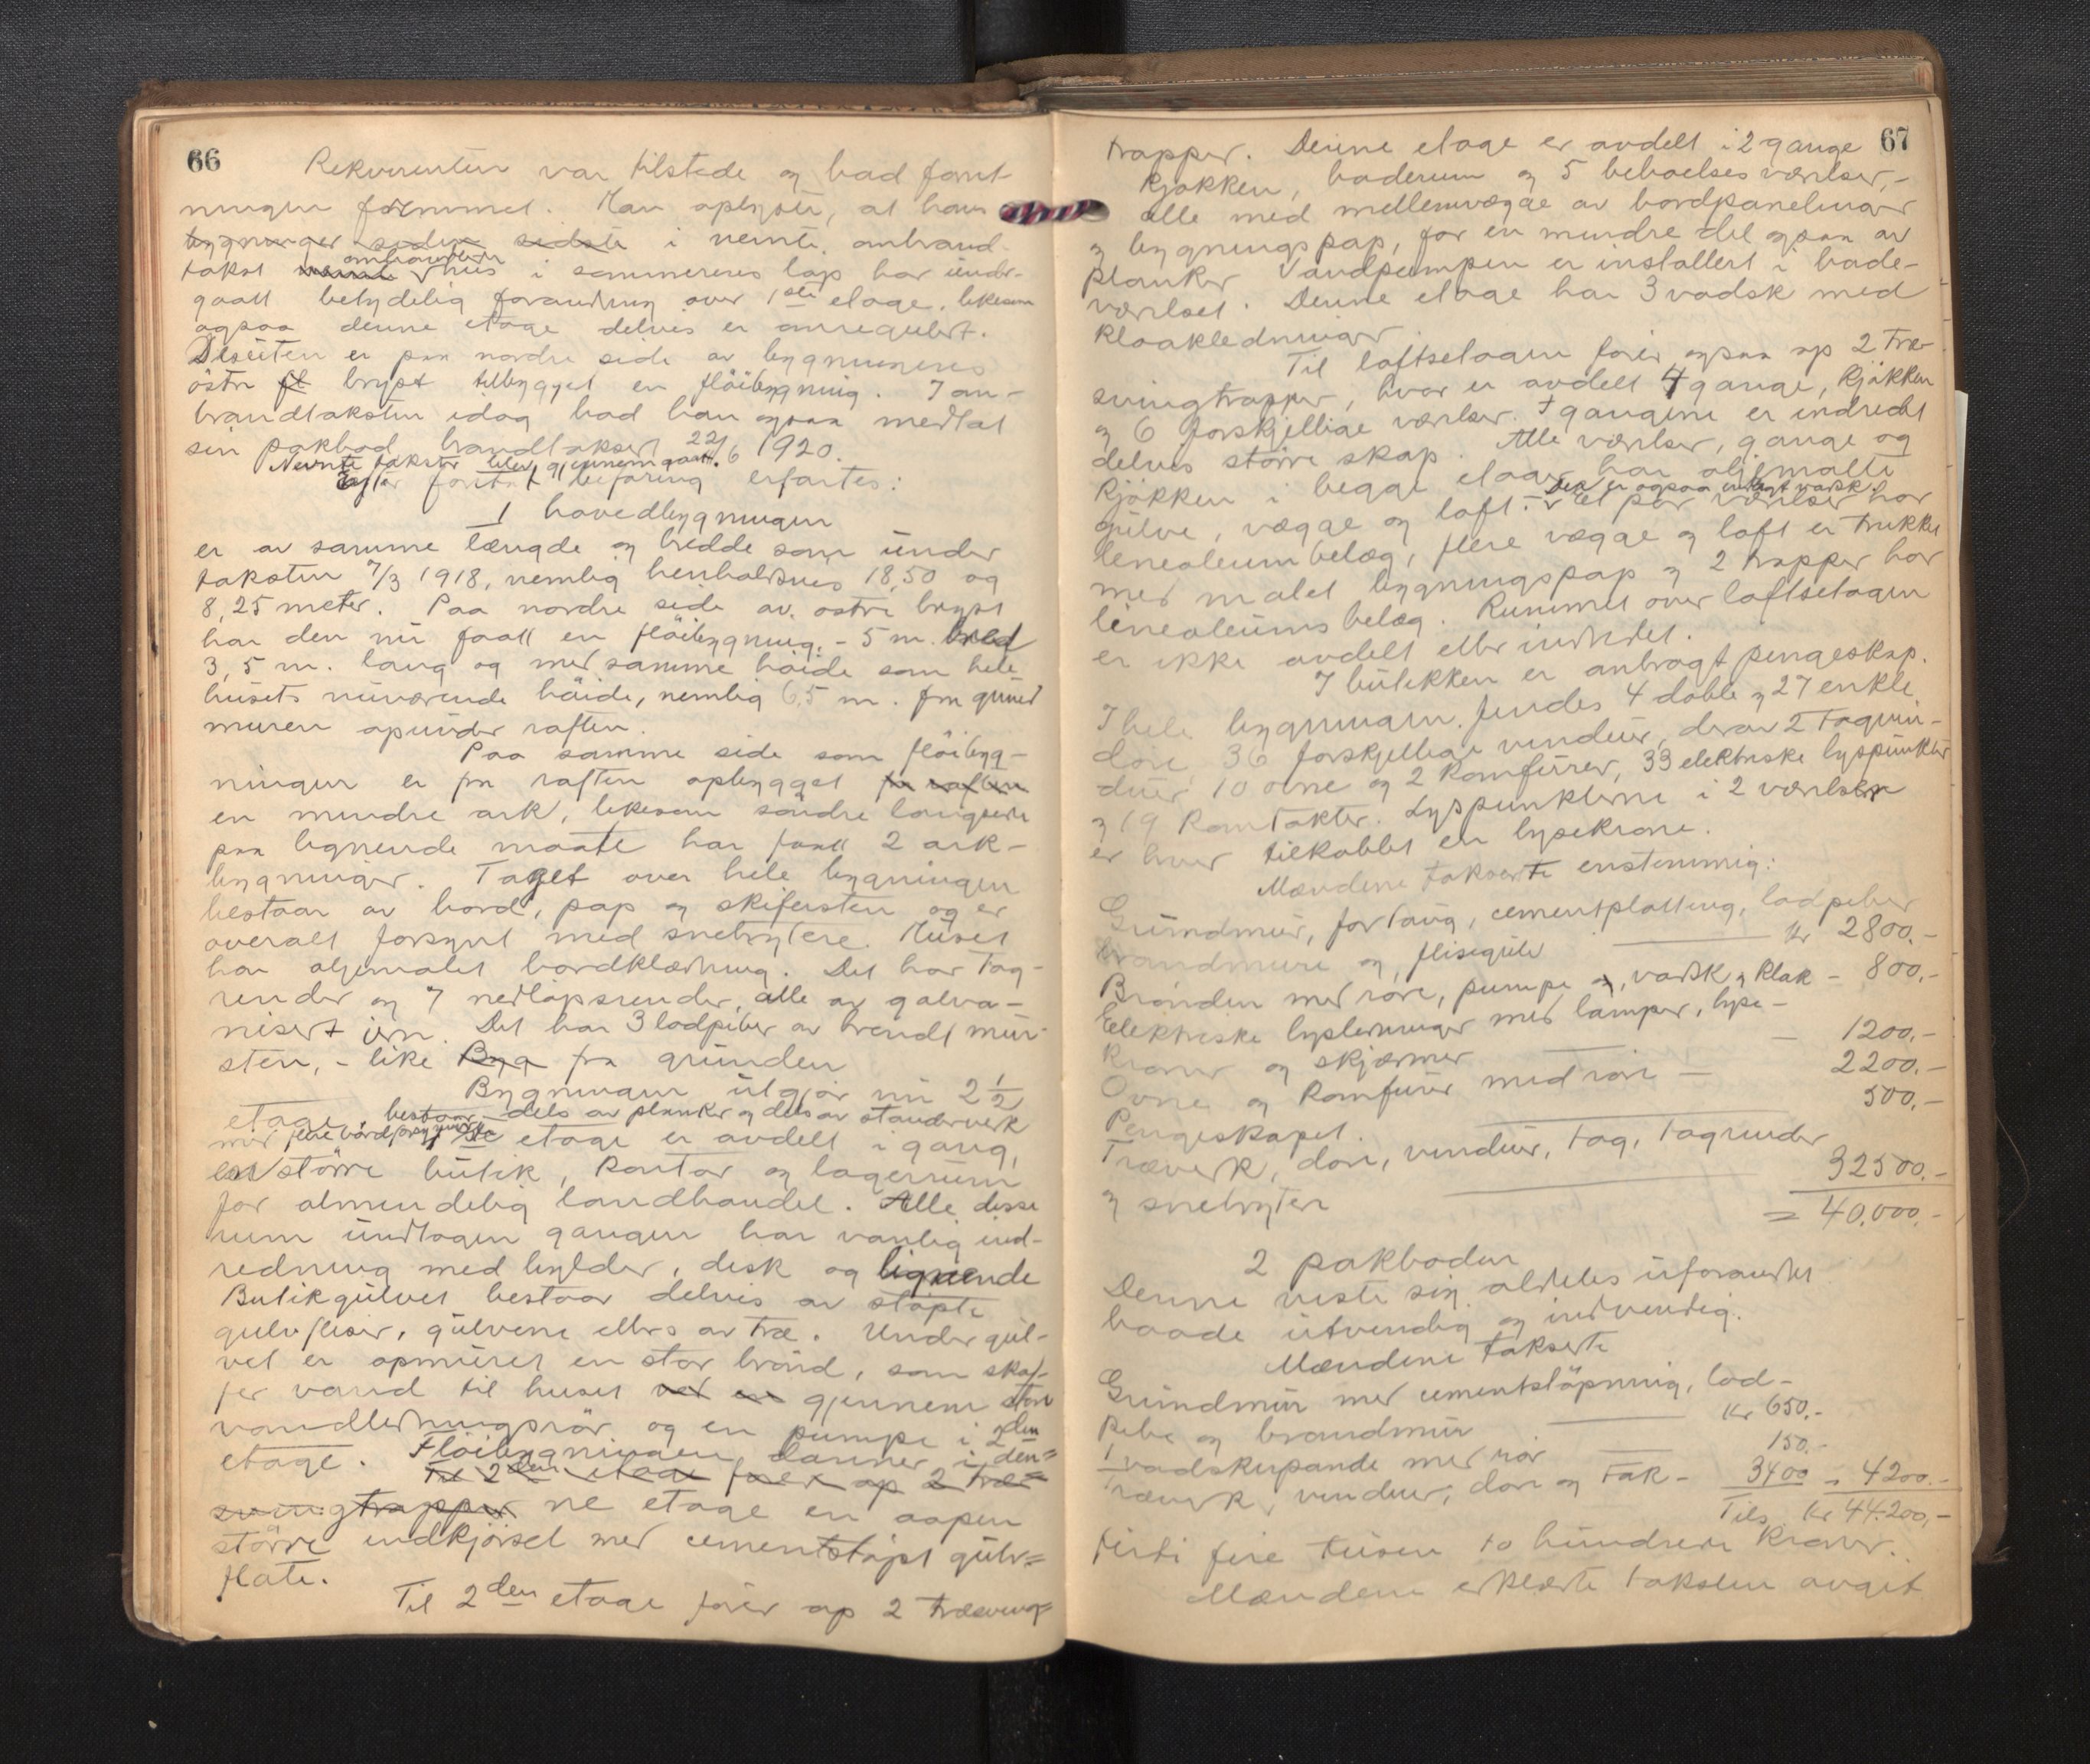 66
Rekvirenten var tilstede og bad forret-
ningen fremmet. Han oplyste, at hans
bygninger siden sidste i nevnte ombrand-
takst omhandlede hus i sommerens løp har under-
gaatt betydelig forandring over 1ste etage, likesom
ogsaa denne etage delvis er omregulert.
Desuten er paa nordre side av bygningens
østre fl bryst tilbygget en fløibygning. I om-
brandtaksten idag bad han ogsaa medtat
sin pakbod, brandtaksert 22/6 1920.
Nevnte takster blev gjennemgaatt.
Efter foretat befaring erfartes:
1 hovedbygningen
er av samme længde og bredde som under
taksten 7/3 1918, nemlig henholdsvis 18,50 og
8,25 meter. Paa nordre side av østre bryst
har den nu faatt en fløibygning, - 5 m. bred
3,5 m. lang og med samme høide som hele
husets nuværende høide, nemlig 6,5 m. fra grund
muren opunder raften.
Paa samme side som fløibyg-
ningen er fra raften opbygget fra raften
en mindre ark, likesom søndre langside
paa lignende maate har faatt 2 ark-
bygninger. Taget over hele bygningen
bestaar av bord, pap og skifersten og er
overalt forsynt med snebrytere. Huset
har oljemalet bordklædning. Det har tag-
render og 7 nedløpsrender, alle av galva-
nisert jern. Det har 3 lodpiber av brendt mur-
sten, - like Byg fra grunden
Bygningen utgjør nu 2 1/2
etage, bestaar dels av planker og dels av standerverk
med flere bord etage er avdelt i gang,
en større butik, kontor og lagerrum
for almindelig landhandel. Alle disse
rum undtagen gangen har vanlig ind-
redning med hylder, disk og lignende
Butikgulvet bestaar delvis av støpte
gulvfliser, gulvene ellers av træ. Under gul-
vet er opmuret en stor brønd, som skaf-
fer vand til huset ved en gjennem
vandledningsrør og en pumpe i 2den
etage. Fløibygningen danner i den-
Til 2den etage fører op 2 træ-
svingtrapper ne etage en aapen
større indkjørsel med cementstøpt gulv-
flate.
Til 2den etage fører op 2 træsving-
67
trapper. Denne etage er avdelt i 2 gange
kjøkken, baderum og 5 beboelsesværelser, -
alle med mellemvægge av bordpanelinger
og bygningspap, for en mindre del ogsaa av
planker Vandpumpen er installert i bade-
værelset. Denne etage har 3 vadsk med
kloakledninger.
Til loftsetagen fører ogsaa op 2 træ-
svingtrapper, hvor er avdelt 4 gange, kjøkken
og 6 forskjellige værelser. I gangene er indredet
delvis større skap. Alle værelser, gange og
kjøkken i begge etager har oljemalte
gulve, vægge og loft. Der er ogsaa indlagt vadsk. Et par værelser har
lenoleumbelæg, flere vægge og loft er trukket
med malet bygningspap og 2 trapper har
lenoleumsbelæg. Rummet over loftsetagen
er ikke avdelt eller indredet.
I butikken er anbragt pengeskap.
I hele bygningen findes 4 doble og 27 enkle
døre, 36 forskjellige vinduer, derav 2 tagvin-
duer, 10 ovne og 2 komfurer, 33 elektriske lyspunkter
og 19 kontakter. Lyspunktene i 2 værelser
er hver tilkoblet en lysekrone.
Mændene takserte enstemmig:
Grundmur, fortaug, cementplatting, lodpiber
brandmure og flisegulv kr 2800.-
Brønden med røre, pumpe, vadsk og kloak - 800.-
Elektriske lysledninger med lamper, lyse-
kroner og skjærmer - 1200.-
Ovne og komfurer med røre - 2200.-
Pengeskapet. 500.-
Træverk, døre, vinduer, tag, tagrender
og snebryter 32500.-
= 40.000.-
2 pakboden
Denne viste sig aldeles uforandret
baade utvendig og indvendig.
Mændene takserte
Grundmur med cementstøpning, lod-
pibe og brandmur kr 650.-
1 vadskepande med rør 150.-
Træverk, vinduer, døre og tak - 3400 = 4200.-
Tils. kr 44.200,-
firti fire tusen to hundrede kroner.
Mændene erklærte taksten avgit